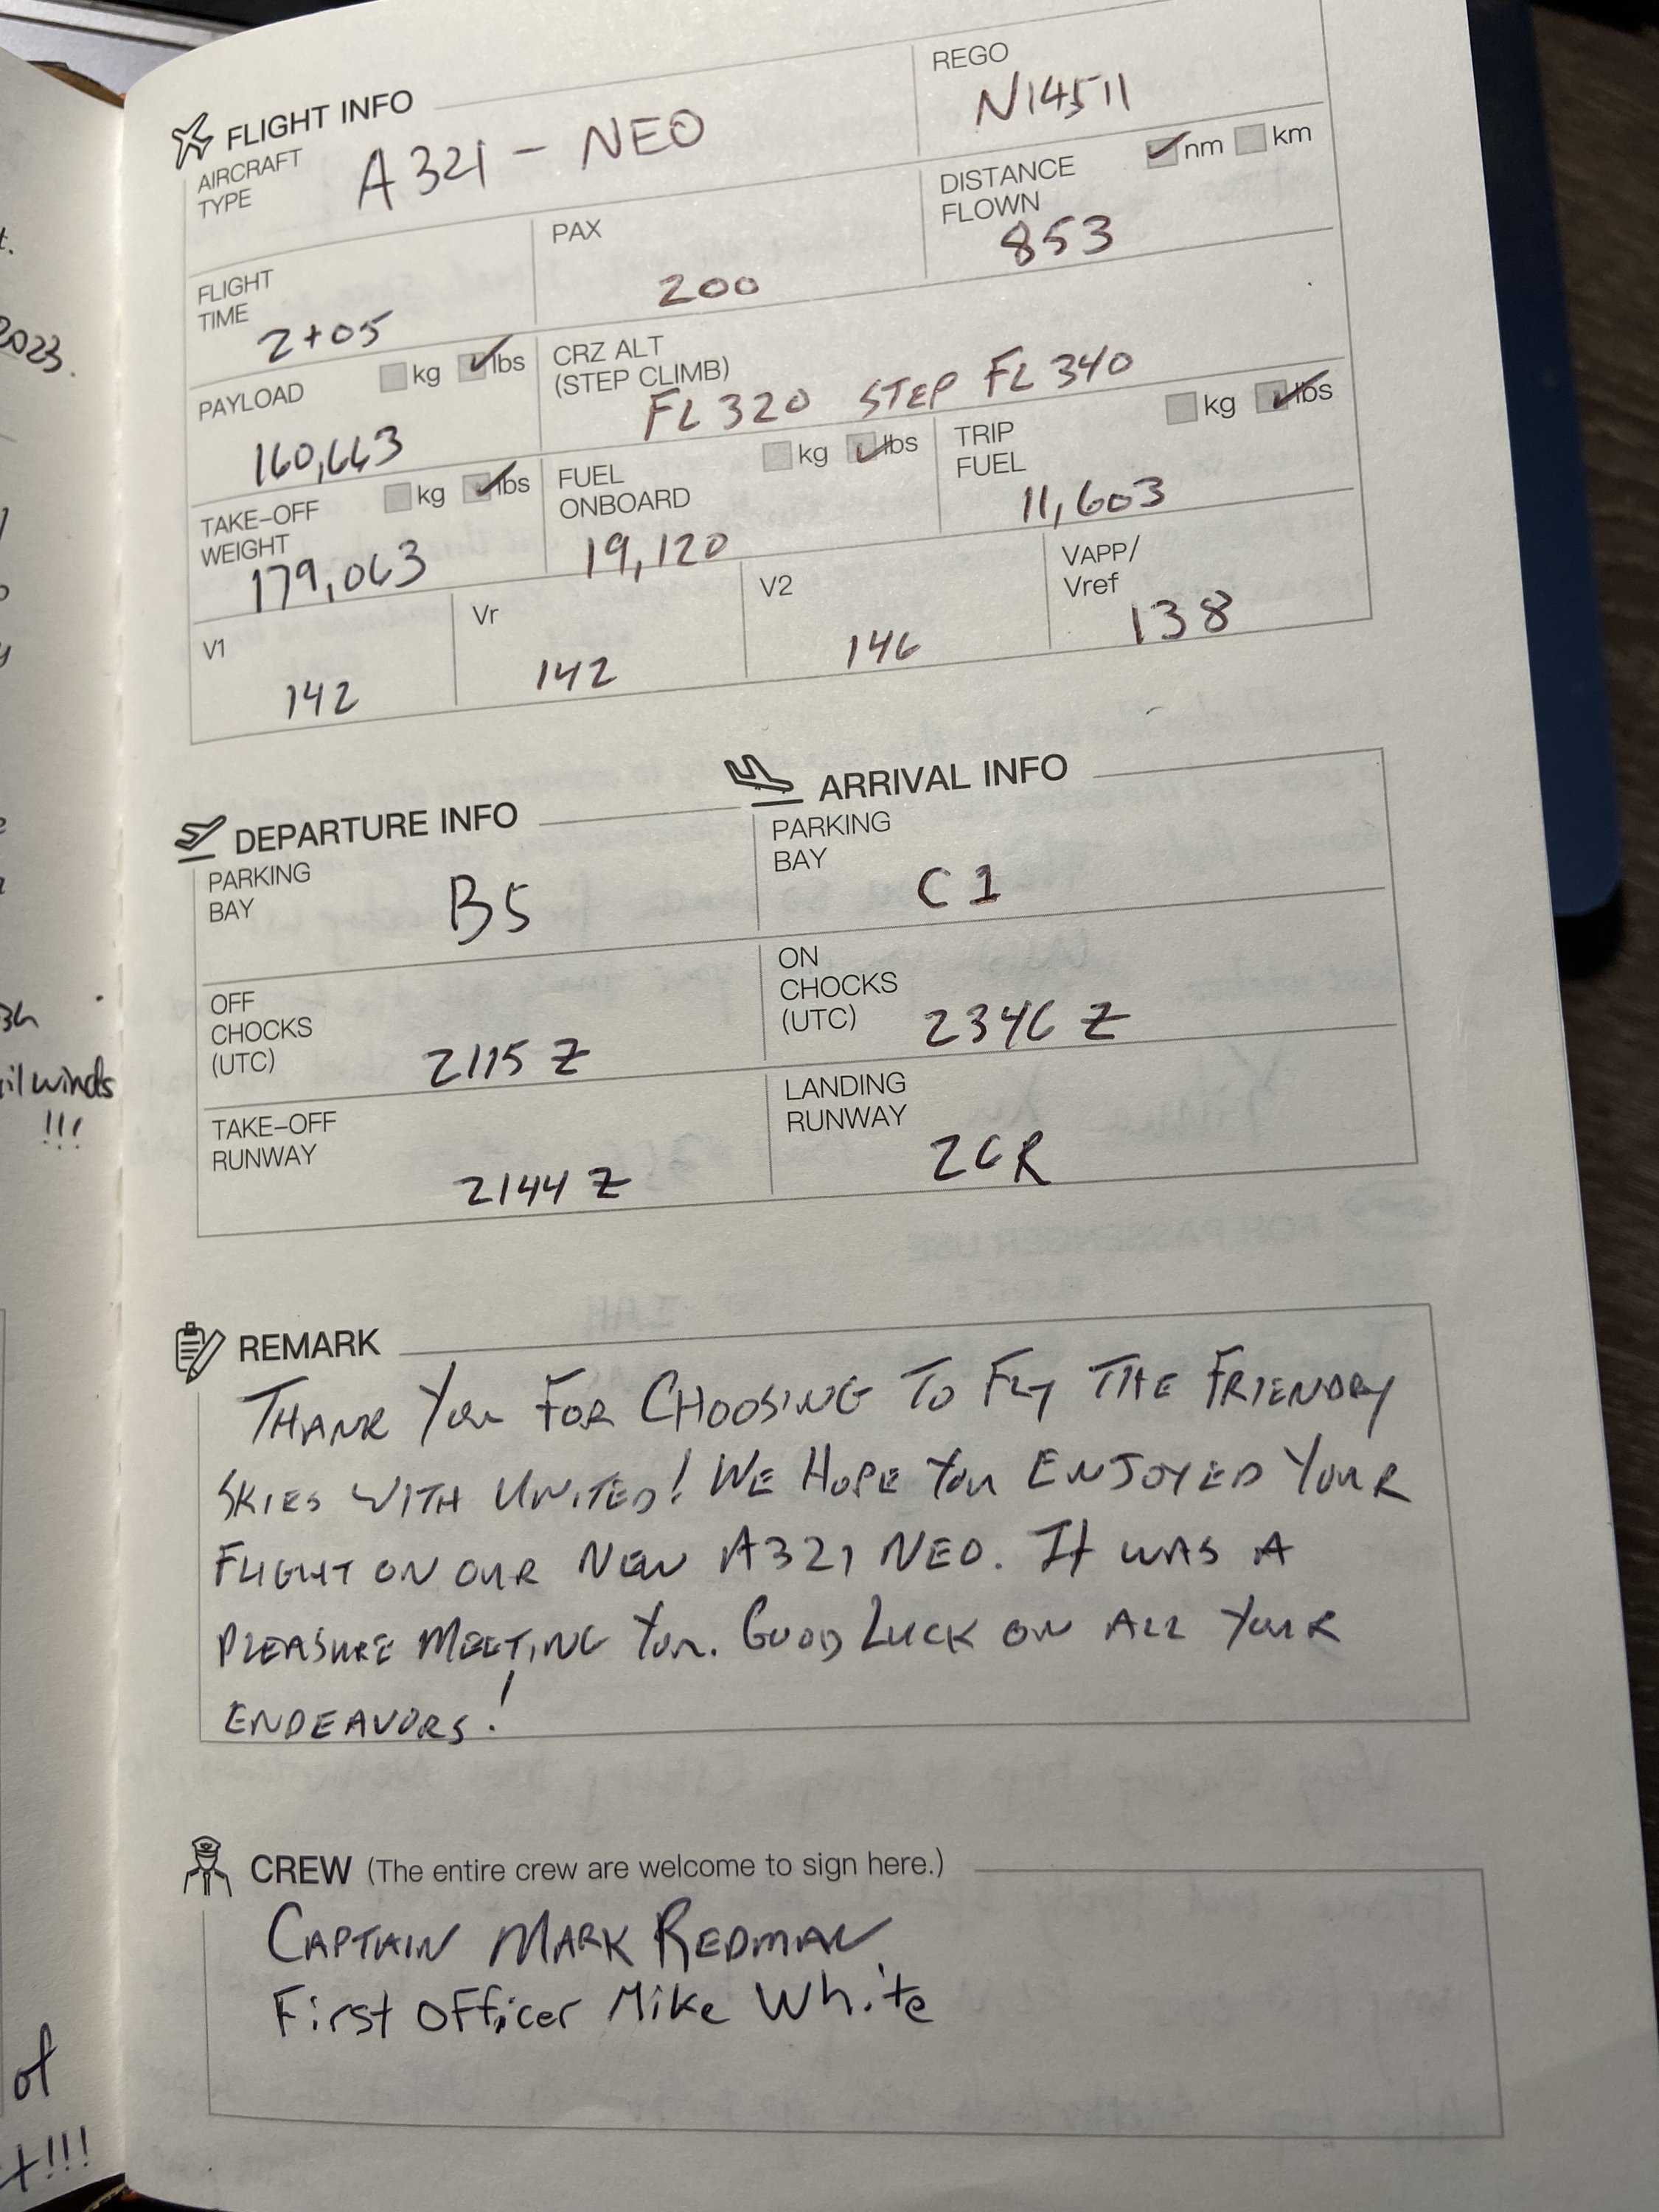 FLIGHT INFO
AIRCRAFT TYPE A321-NEO
REGO N14511
FLIGHT TIME 2+05
PAX 200
DISTANCE FLOWN nm km 853
PAYLOAD kg lbs 160,663
CRZ ALT (STEP CLIMB) FL320 STEP FL340
TAKE-OFF WEIGHT kg lbs 179,063
FUEL ONBOARD kg lbs 19,120
TRIP FUEL kg lbs 11,603
V1 142
Vr 142
V2 146
VAPP/Vref 138
DEPARTURE INFO
PARKING BAY B5
OFF CHOCKS (UTC) 2115 Z
TAKE-OFF RUNWAY 2144 Z
ARRIVAL INFO
PARKING BAY C1
ON CHOCKS (UTC) 2346 Z
LANDING RUNWAY 26R
REMARK
THANK YOU FOR CHOOSING TO FLY THE FRIENDLY
SKIES WITH UNITED! WE HOPE YOU ENJOYED YOUR
FLIGHT ON OUR NEW A321 NEO. It WAS A
PLEASURE MEETING YOU. GOOD LUCK ON ALL YOUR
ENDEAVORS!
CREW (The entire crew are welcome to sign here.)
CAPTAIN MARK REDMAN
First Officer Mike White
2023.
ilwinds
!!!
of
!!!
FOR PASSENGER USE
IAH